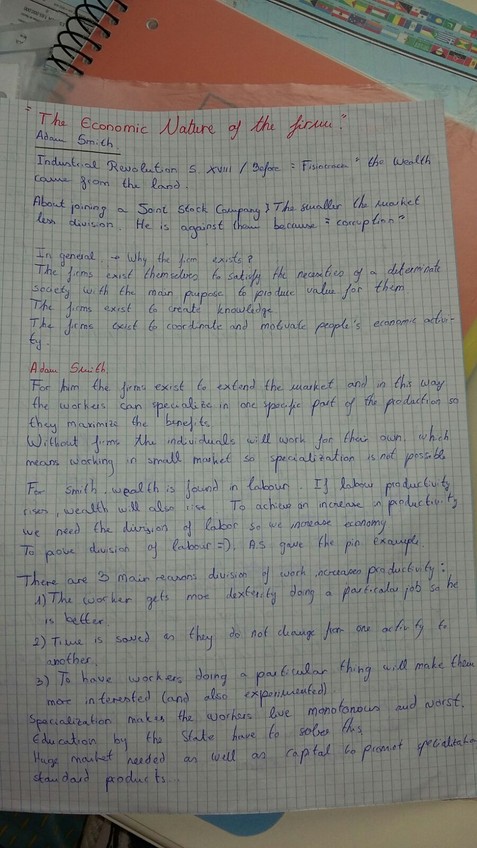 "The Economic Nature of the firm"
Adam Smith.
Industrial Revolution S. XVIII / Before = the wealth
came from the land.
About joining a Joint Stock Company } The smaller the market
less division. He is against them because = corruption"
In general, → Why the firm exists?
The firms exist themselves to satisfy the necesities of a determinate
society with the main purpose to produce value for them
The firms exist to create knowledge.
The firms exist to coordinate and motivate people's economic activi-
ty.
Adam Smith.
For him the firms exist to extend the market and in this way
the workers can specialize in one specific part of the production so
they maximize the benefits.
Without firms the individuals will work for their own, which
means working in small market so specialization is not possible
For Smith, wealth is found in labour. If labour productivity
rises, wealth will also rise. To achieve an increase in productivity
we need the division of labor so we increase economy
To prove division of labour =). A.S gave the pin example.
There are 3 main reasons division of work increased productivity:
1) The worker gets more dexterity doing a particular job so he
is better.
2) Time is saved as they do not change from one activity to
another.
3) To have workers doing a particular thing will make them
more interested (and also experimented)
Specialization makes the workers live monotonous and worst.
Education by the State have to solve this.
Huge market needed as well as capital to promot
standard products.